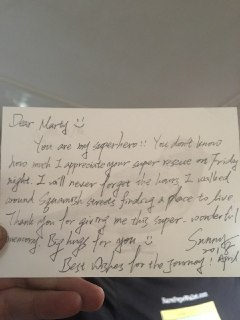 Dear Marty :)
You are my superhero!! You don't know
how much I appreciate your super rescue on Friday
night. I will never forget the hours I walked
around Squamish streets finding a place to live
Thank you for giving me this super-wonderful
memory Big hugs for you :)
Sunny
Best Wishes for the Journey! April